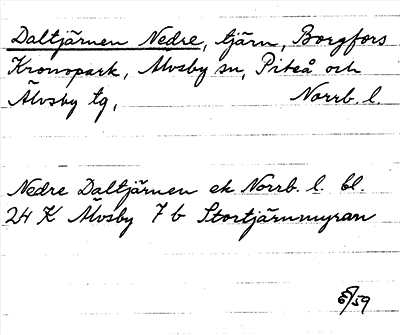 Daltjärnen Nedre, tjärn, Borgfors
Kronopark, Älvsby sn, Piteå och
Älvsby tg, Norrb. l.
Nedre Daltjärnen ek Norrb. l. bl.
24 K Älvsby 7 b Stortjärnmyran
5/59